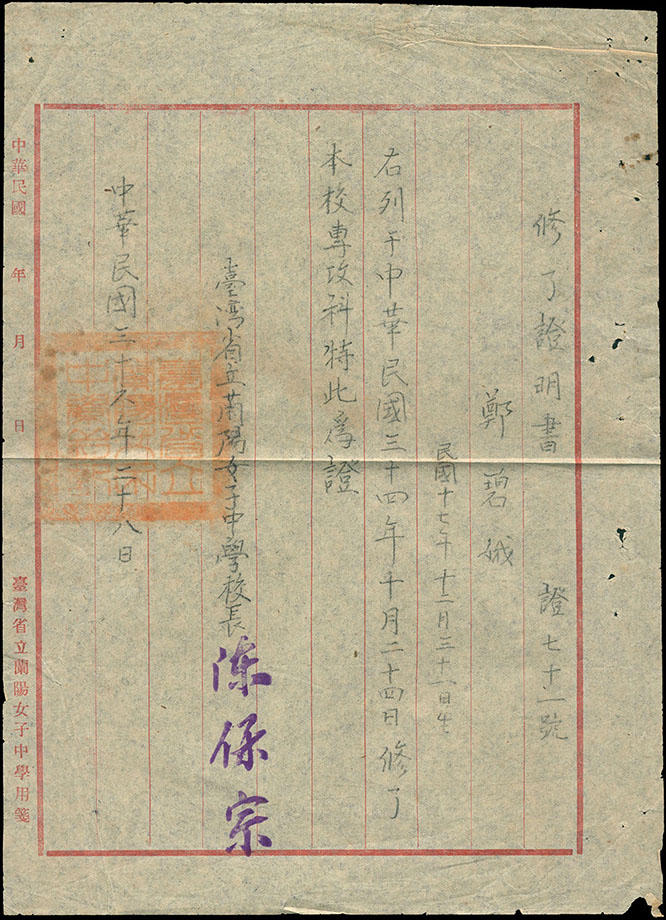 修了證明書 證七十一號
鄭碧娥
民國十七年十二月三十一日生
右列于中華民國三十四年十月二十四日修了
本校專攻科特此為證
臺灣省立蘭陽女子中學校長 陳保宗
中華民國三十六年 二十八日
中華民國 年 月 日 臺灣省立蘭陽女子中學用箋